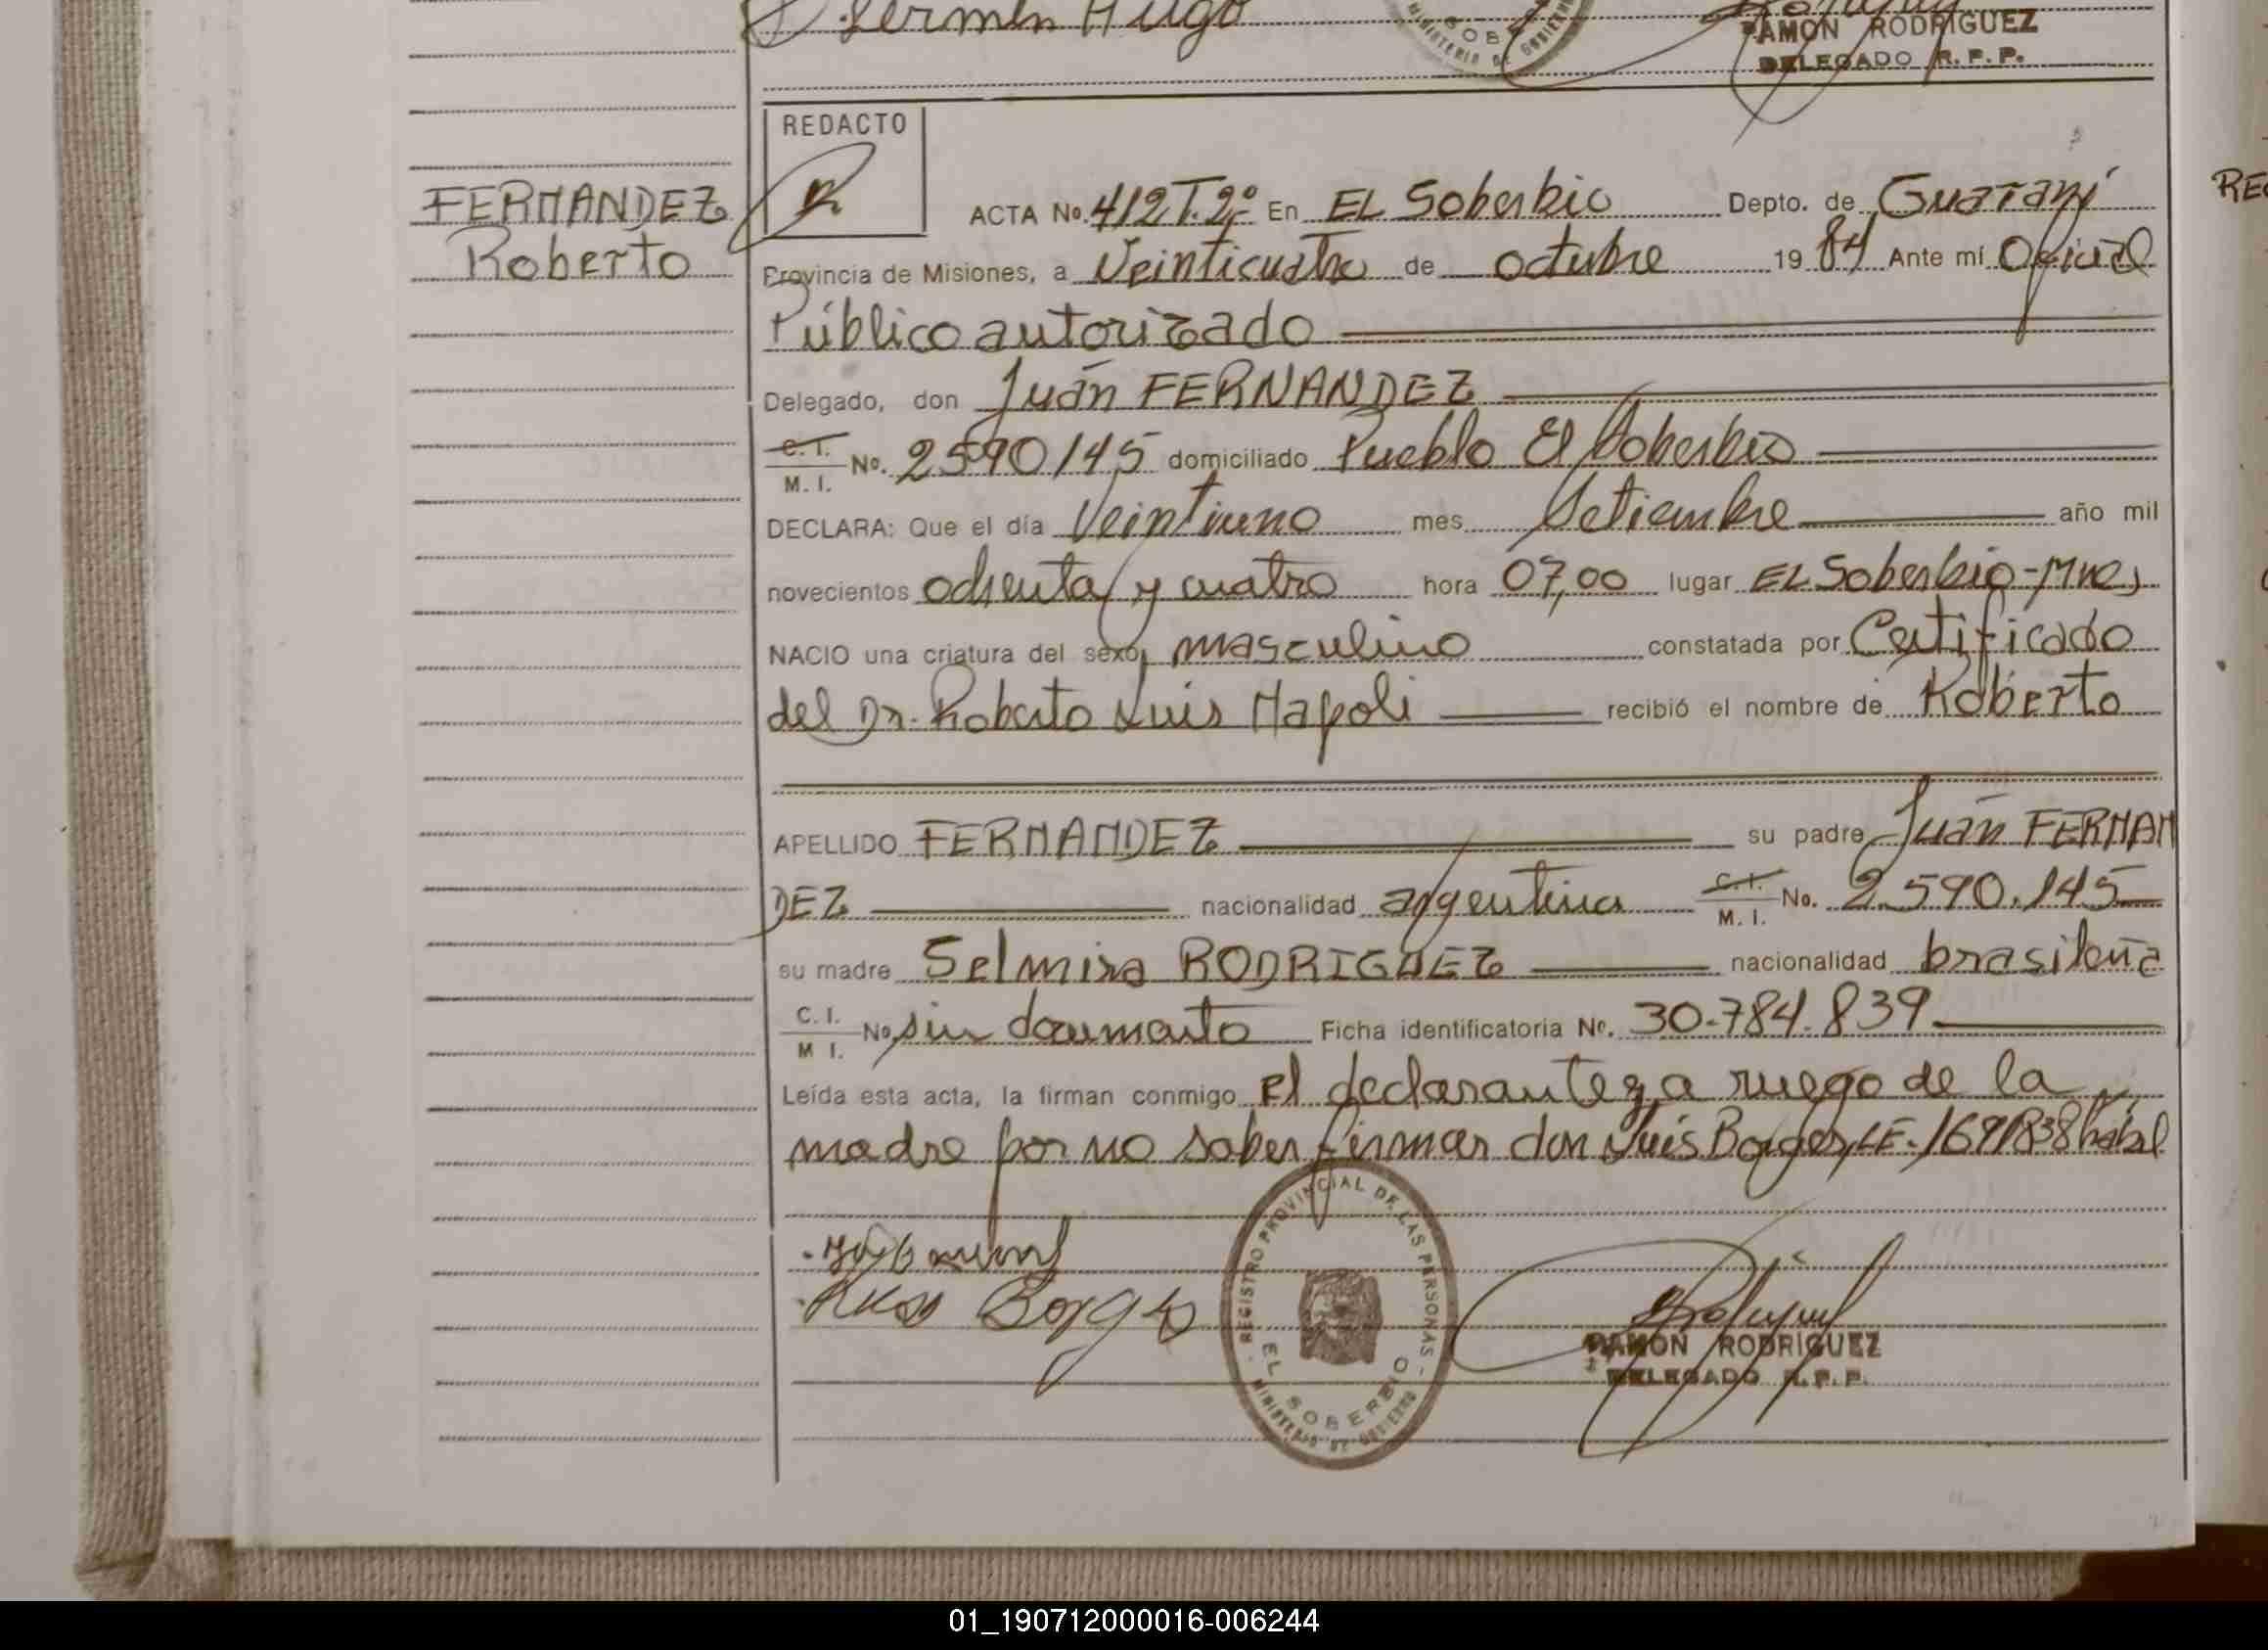 Fermin Hugo
RAMON RODRIGUEZ
DELEGADO R.P.P.
REDACTO
FERNANDEZ
Roberto
ACTA No. 412 T. 2º En EL Soberbio Depto. de Guaraní
Provincia de Misiones, a Veinticuatro de octubre 19 84 Ante mí Oficial
Público autorizado
Delegado, don Juán FERNANDEZ
C. I. / M. I. No. 2590145 domiciliado Pueblo El Soberbio
DECLARA: Que el día Veintiuno mes Setiembre año mil
novecientos ochenta y cuatro hora 07,00 lugar EL Soberbio-Mnes
NACIO una criatura del sexo masculino constatada por Certificado
del Dr. Roberto Luis Napoli recibió el nombre de Roberto
APELLIDO FERNANDEZ su padre Juán FERNAN
DEZ nacionalidad argentina C.I. / M. I. No. 2.590.145
su madre Selmira RODRIGUEZ nacionalidad brasileña
C. I. / M I. No. sin documento Ficha identificatoria No. 30.784.839
Leída esta acta, la firman conmigo el declarante y a ruego de la
madre por no saber firmar don Luis Borges, LE. 1691838 habil
Luis Borges
REGISTRO PROVINCIAL DE LAS PERSONAS
EL SOBERBIO
MINISTERIO DE GOBIERNO
RAMON RODRIGUEZ
DELEGADO R.P.P.
01_190712000016-006244